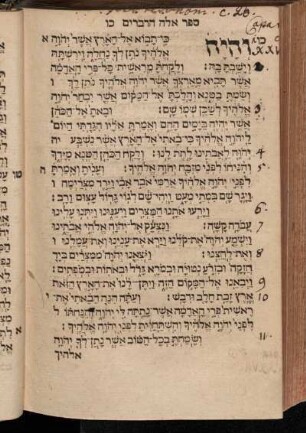 ספר אלה הדברים כו
והיה כי תבוא אל הארץ אשר יהוה א
אלהיך נתן לך נחלה וירשתה
וישבת בה: ולקחת מראשית כל פרי האדמה 2
אשר תביא מארצך אשר יהוה אלהיך נתן לך
ושמת בטנא והלכת אל המקום אשר יבחר יהוה
אלהיך לשכן שמו שם: ובאת אל הכהן 3
אשר יהיה בימים ההם ואמרת אליו הגדתי היום
ליהוה אלהיך כי באתי אל הארץ אשר נשבע יהוה
לאבתינו לתת לנו: ולקח הכהן הטנא מידך 4
והניחו לפני מזבח יהוה אלהיך: וענית ואמרת ה
לפני יהוה אלהיך ארמי אבד אבי וירד מצרימה
ויגר שם במתי מעט ויהי שם לגוי גדול עצום ורב:
וירעו אתנו המצרים ויענונו ויתנו עלינו 6
עבדה קשה: ונצעק אל יהוה אלהי אבתינו 7
וישמע יהוה את קלנו וירא את ענינו ואת עמלנו
ואת לחצנו: ויוצאנו יהוה ממצרים ביד 8
חזקה ובזרע נטויה ובמרא גדל ובאתות ובמפתים:
ויבאנו אל המקום הזה ויתן לנו את הארץ הזאת 9
ארץ זבת חלב ודבש: ועתה הנה הבאתי את 10
ראשית פרי האדמה אשר נתתה לי יהוה והנחתו
לפני יהוה אלהיך והשתחוית לפני יהוה אלהיך:
ושמחת בכל הטוב אשר נתן לך יהוה 11
אלהיך